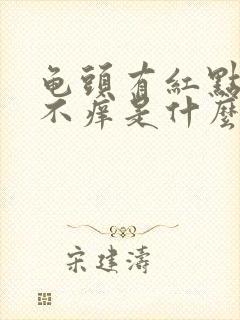 龟頭有紅點
不癢是什麼
宋建濤